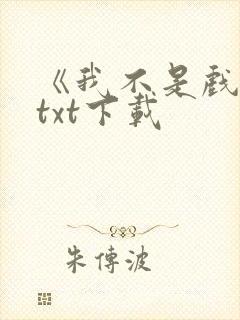 《我不是戲
txt下載
朱傳波